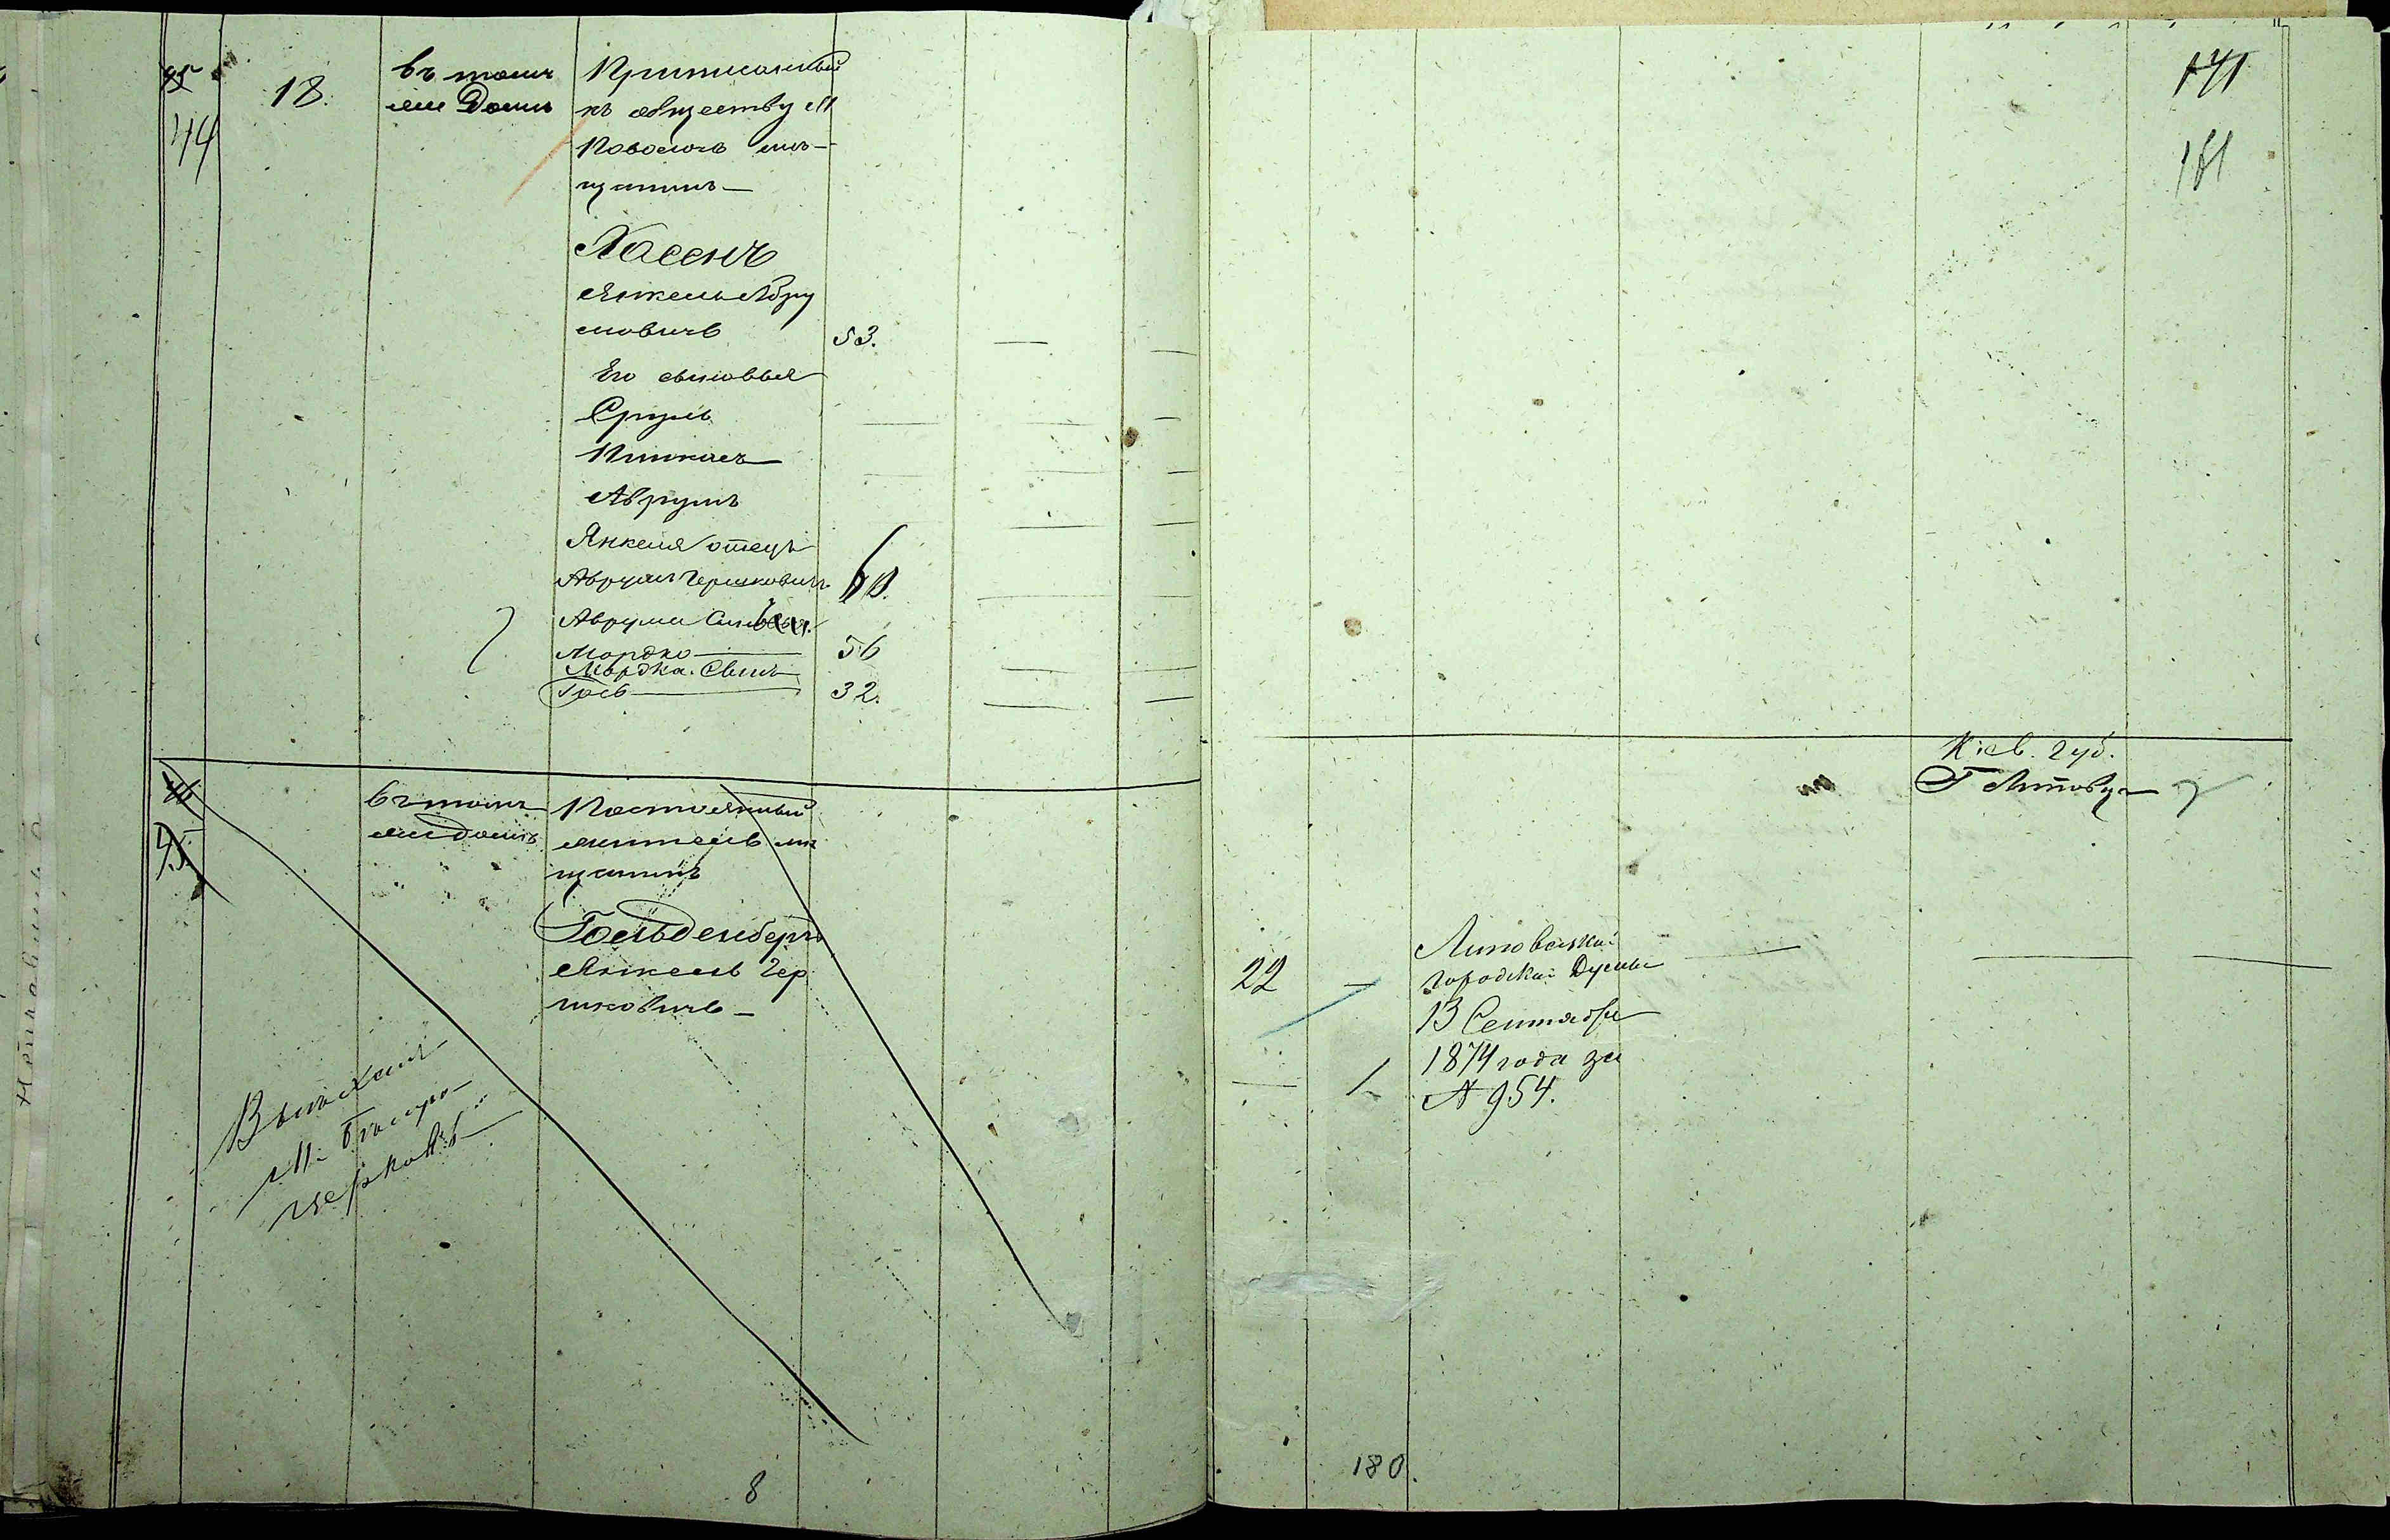 44
18.
въ томъ
же домѣ
Приписанный
къ обществу м
Поволочь мѣ-
щанинъ
Хасенъ
Янкель Абру
мовичъ 53.
Его сыновья
Сруль
Пинкасъ
Аврумъ
Янкеля отецъ
Аврумъ Гершковичъ 60.
Аврума Сыновья
Мордко 56
Мордка Сынъ
Іось 32.
45
въ томъ
же домѣ
Постоянный
житель мѣ
щанинъ
Гольденбергъ
Янкель Гер
шковичъ
Выехалъ
М.
церковь
8
171
181
Кіев. губ.
22
Липовецкой
Городской Думы
13 Сентября
1874 года за
№ 954.
180.